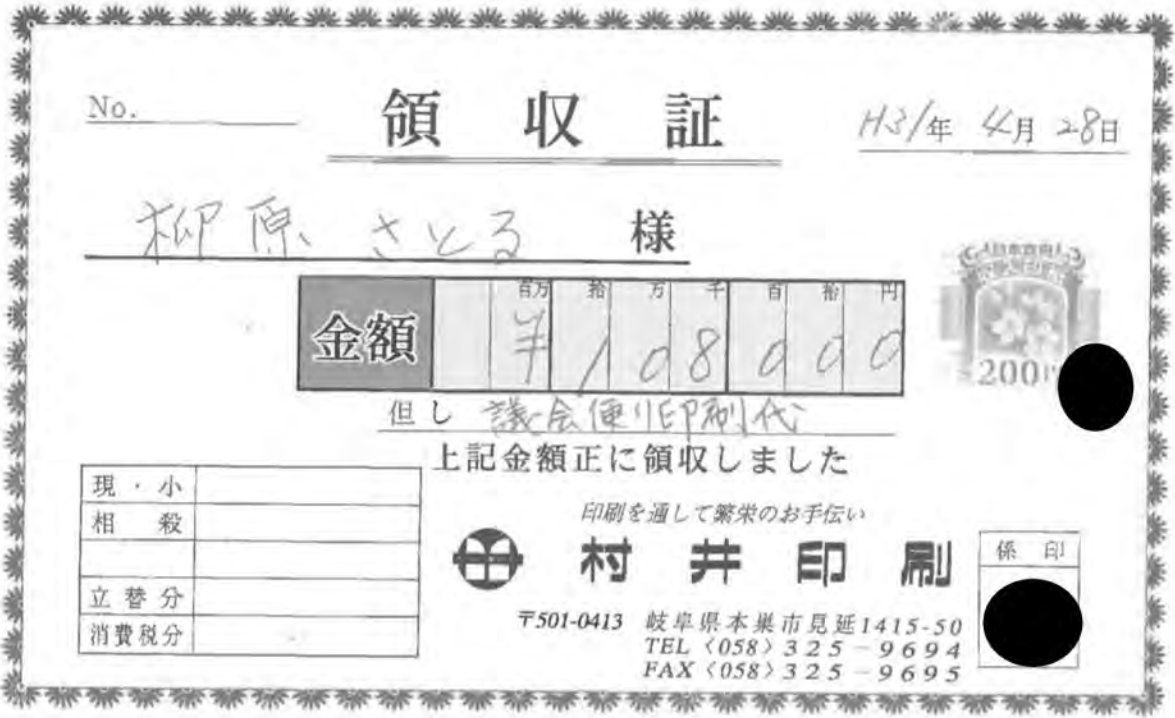 No.
領収証
H31年 4月 28日
柳原 さとる 様
金額
百万 拾 万 千 百 拾 円
¥108000
但し 議会便り印刷代
上記金額正に領収しました
現・小
相殺
立替分
消費税分
印刷を通して繁栄のお手伝い
村井印刷
〒501-0413 岐阜県本巣市見延1415-50
TEL〈058〉325-9694
FAX〈058〉325-9695
係印
日本政府
200円